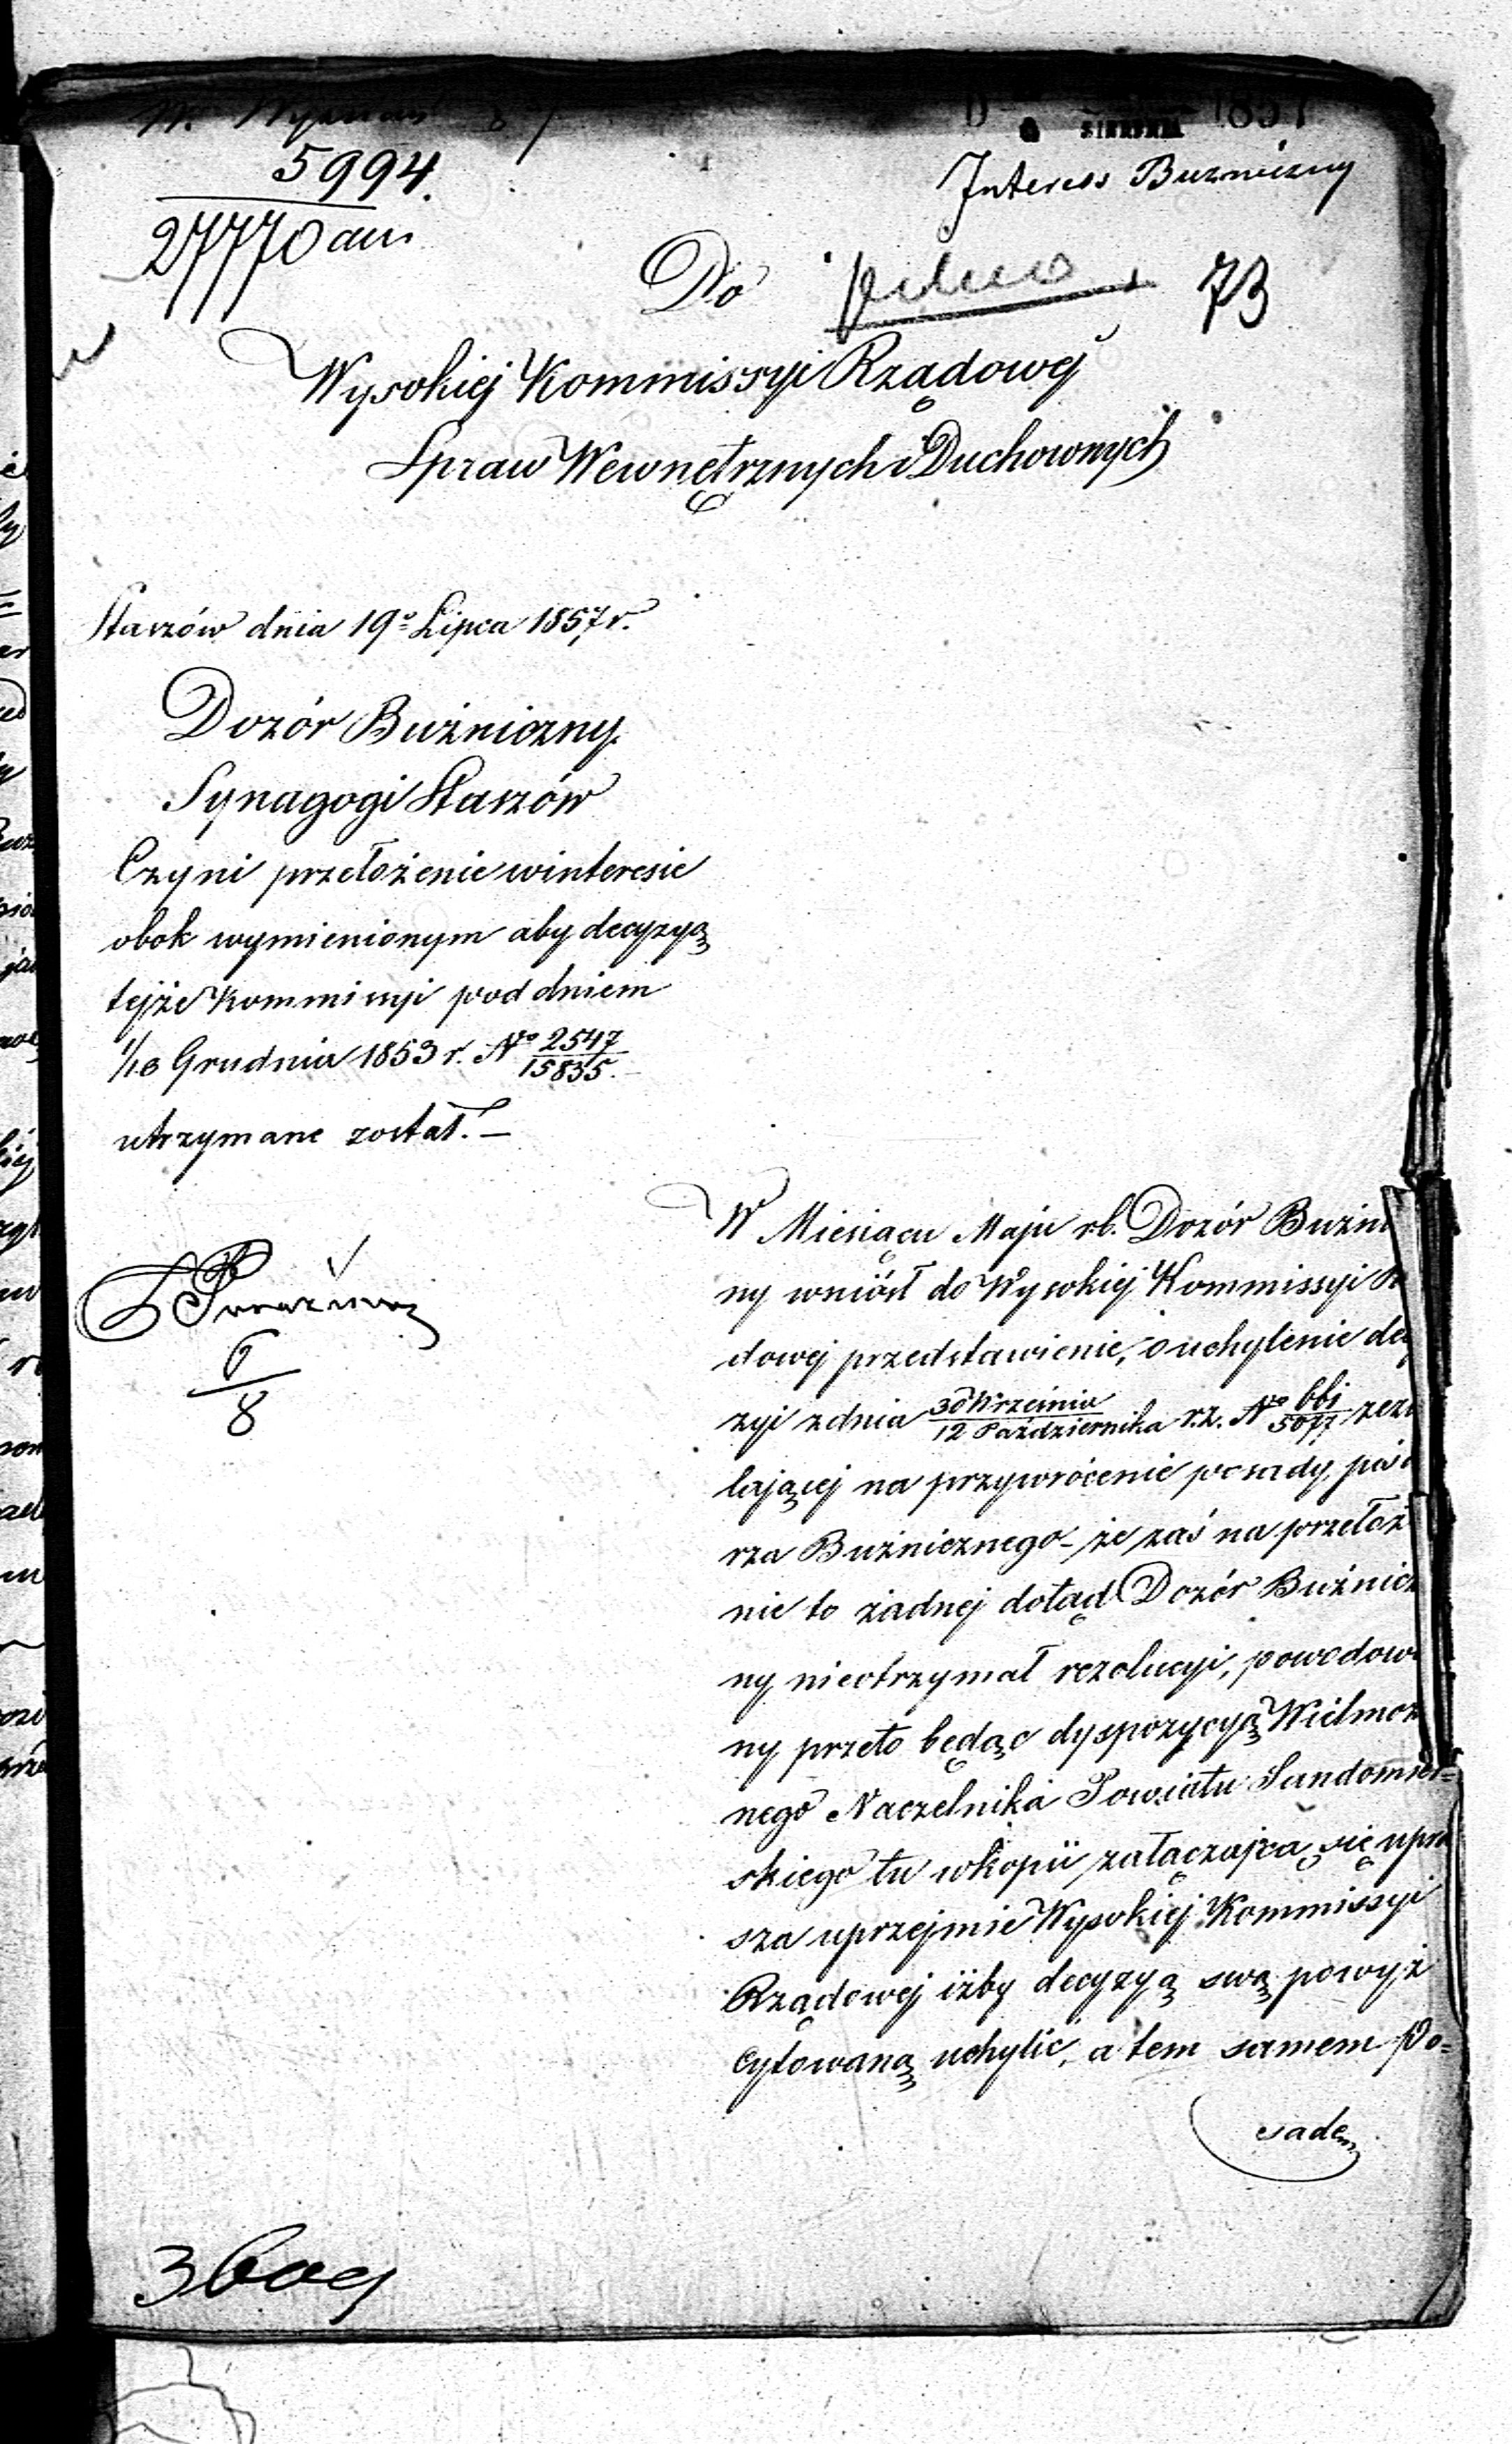 5994.
27770
SIERPNIA 1857
Interess Buzniczny
Do
73
Wysokiej Kommissyi Rządowej
Spraw Wewnętrznych i Duchownych
Staszów dnia 19º Lipca 1857 r.
Dozór Buźniczny
Synagogi Staszów
Czyni przełożenie winteresie
obok wymienionym aby decyzyą
tejże Kommissyi pod dniem
1/13 Grudnia 1853 r. No 2547/15835.
utrzymane został. —
6/8
W Miesiącu Maju rb. Dozór Buźni
ny wniósł do Wysokiej Kommissyi
dowej przedstawienie, o uchylenie de
zyi zdnia 30 Września/12 Października r.z. No 661/5077 zez
lającej na przywrócenie posady, pis
rza Buźnicznego – że zaś na przełoż
nie to żadnej dotąd Dozór Buźnicz
ny nieotrzymał rezolucyi, powodowa
ny przeto będąc dyspozycyą Wielmoż
nego Naczelnika Powiatu Sandomier=
skiego tu wkopii załączającą się upra
sza uprzejmie Wysokiej Kommissyi
Rządowej iżby decyzyą swą powyż
cytowaną uchylić, a tem samem Po=
sadę